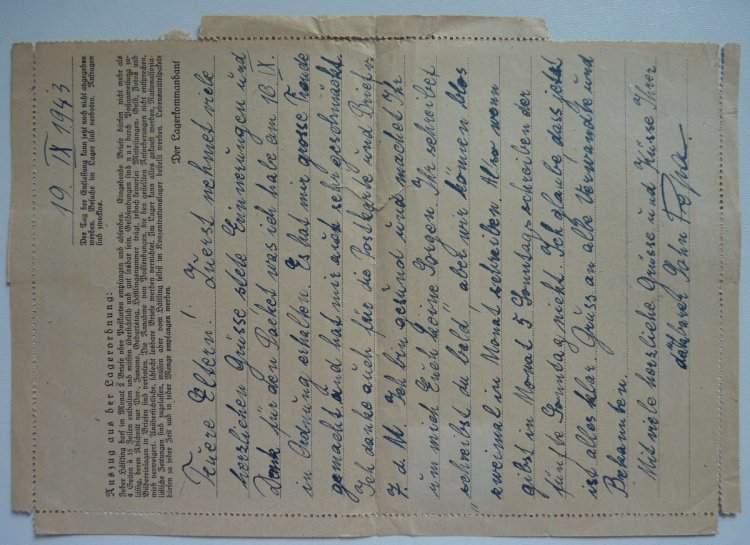 19 IX 1943
Der Tag der Entlassung kann jetzt noch nicht angegeben
werden. Besuche im Lager sind verboten. Anfragen
sind zwecklos.
Auszug aus der Lagerordnung:
Jeder Häftling darf im Monat 2 Briefe oder Postkarten empfangen und absenden. Eingehende Briefe dürfen nicht mehr als
4 Seiten à 15 Zeilen enthalten und müssen übersichtlich und gut lesbar sein. Geldsendungen sind nur durch Postanweisung zu-
lässig, deren Abschnitt nur Vor-, Zuname, Geburtstag, Häftlingsnummer trägt, jedoch keinerlei Mitteilungen. Geld, Fotos und
Bildereinlagen in Briefen sind verboten. Die Annahme von Postsendungen, die den gestellten Anforderungen nicht entsprechen,
wird verweigert. Unübersichtliche, schlecht lesbare Briefe werden vernichtet. Im Lager kann alles gekauft werden. Nationalsozia-
listische Zeitungen sind zugelassen, müssen aber vom Häftling selbst im Konzentrationslager bestellt werden. Lebensmittelpakete
dürfen zu jeder Zeit und in jeder Menge empfangen werden.
Der Lagerkommandant
Teuere Eltern! Zuerst nehmet viele
herzlichen Grüsse Erinnerungen und
Dank für den Packet was ich habe am 18 IX.
in Ordnung erhalten Es hat mir grosse Freude
gemacht und hat mir auch sehr geschmäckt
Ich danke auch für die Postkarte und Brief v.
7. d. M. Ich bin gesund und machet Ihr
um mich Euch keine Sorgen. Ihr schreibet
"schreibst du bald" aber wir können blos
zweimal in Monat schreiben Also wenn
gibst in Monat 5 Sonntag, schreiben der
fünfte Sonntag nicht. Ich glaube dass jetzt
ist alles klar. Gruss an alle Verwandte und
Bekannten.
Mit viele herzliche Grüsse und Küsse Ihrer
dankbaver Sohn Pepa.